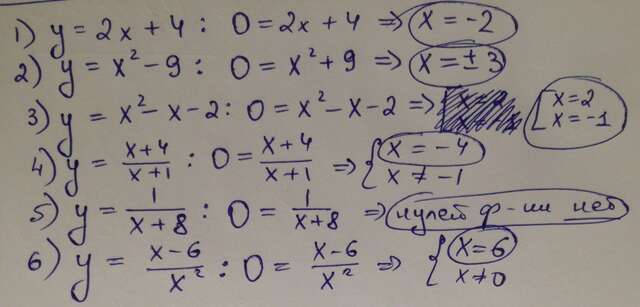 1) y = 2x + 4 : 0 = 2x + 4 ⇒ x = -2
2) y = x² - 9 : 0 = x² + 9 ⇒ x = ±3
3) y = x² - x - 2 : 0 = x² - x - 2 ⇒ [x = 2 x = -1
4) y = (x+4)/(x+1) : 0 = (x+4)/(x+1) ⇒ {x = -4 x ≠ -1
5) y = 1/(x+8) : 0 = 1/(x+8) ⇒ нулей ф-ии нет
6) y = (x-6)/x² : 0 = (x-6)/x² ⇒ {x = 6 x ≠ 0